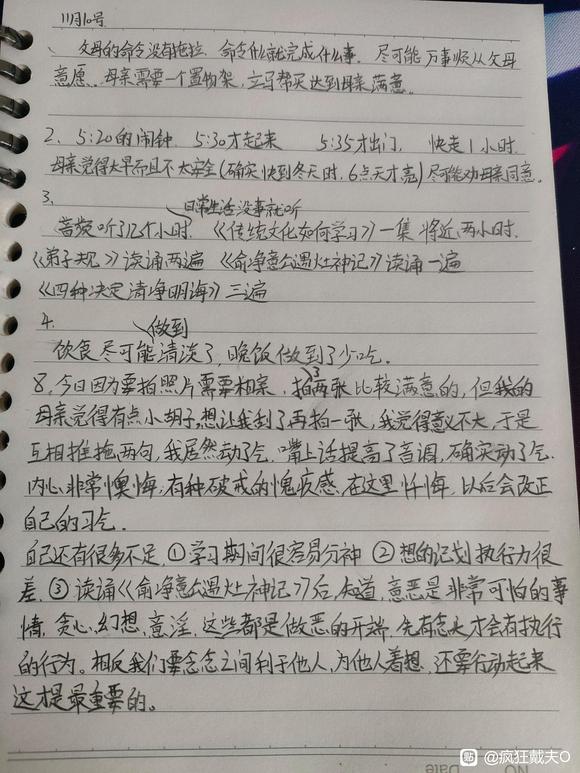 11月10号
、父母的命令没有拖拉,命令什么就完成什么事. 尽可能万事顺从父母
意愿. 母亲需要一个置物架,立马帮买达到母亲满意。
2、5:20的闹钟 5:30才起来 5:35才出门, 快走1小时.
母亲觉得太早而且不太安全(确实快到冬天时,6点天才亮)尽可能劝母亲同意.
3、
日常生活没事就听
音频听了12个小时. 《传统文化如何学习》一集 将近两小时.
《弟子规》读诵两遍 《俞净意公遇灶神记》读诵一遍
《四种决定清净明诲》三遍
4、
做到
饮食尽可能清淡了,晚饭做到了少吃.
8,今日因为要拍照片需要相亲,拍了两张比较满意的,但我的
母亲觉得有点小胡子,想让我刮了再拍一张,我觉得意义不大,于是
互相推拖两句,我居然动了气. 嘴上话提高了音调,确实动了气.
内心非常懊悔,有种破戒的愧疚感,在这里忏悔,以后会改正
自己的习气.
自己还有很多不足,①学习期间很容易分神 ②想的计划执行力很
差. ③读诵《俞净意公遇灶神记》后,知道,意恶是非常可怕的事
情, 贪心,幻想,意淫,这些都是做恶的开端,先有念头才会有执行
的行为。相反我们要念念之间利于他人,为他人着想,还要行动起来
这才是最重要的。
NO.
Date
點 @疯狂戴夫O